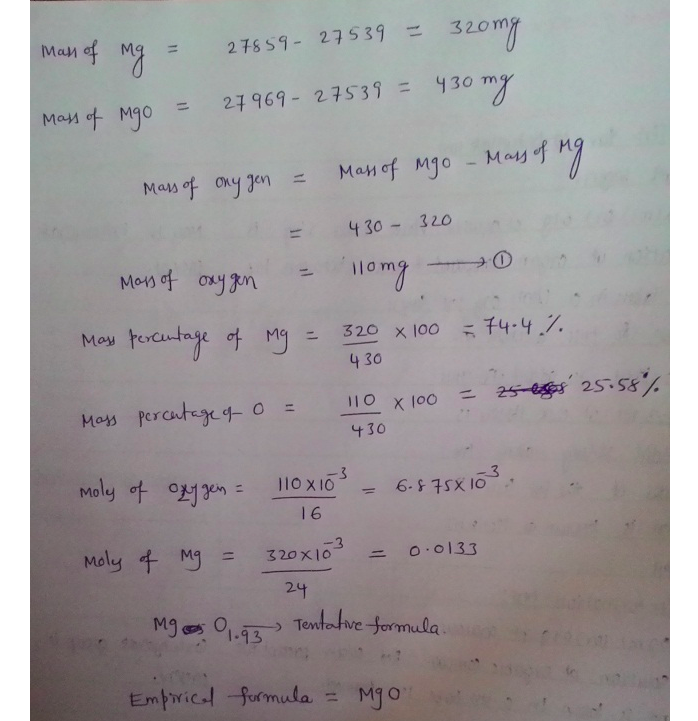 Mass of Mg = 27859 - 27539 = 320mg
Mass of MgO = 27969 - 27539 = 430 mg
Mass of oxygen = Mass of MgO - Mass of Mg
= 430 - 320
Mass of oxygen = 110mg → ①
Mass percentage of Mg = 320/430 × 100 = 74.4 %
Mass percentage of O = 110/430 × 100 = 25.58%
Moly of oxygen = 110×10⁻³/16 = 6.875×10⁻³
Moly of Mg = 320×10⁻³/24 = 0.0133
Mg O₁.₉₃ → Tentative formula.
Empirical formula = MgO